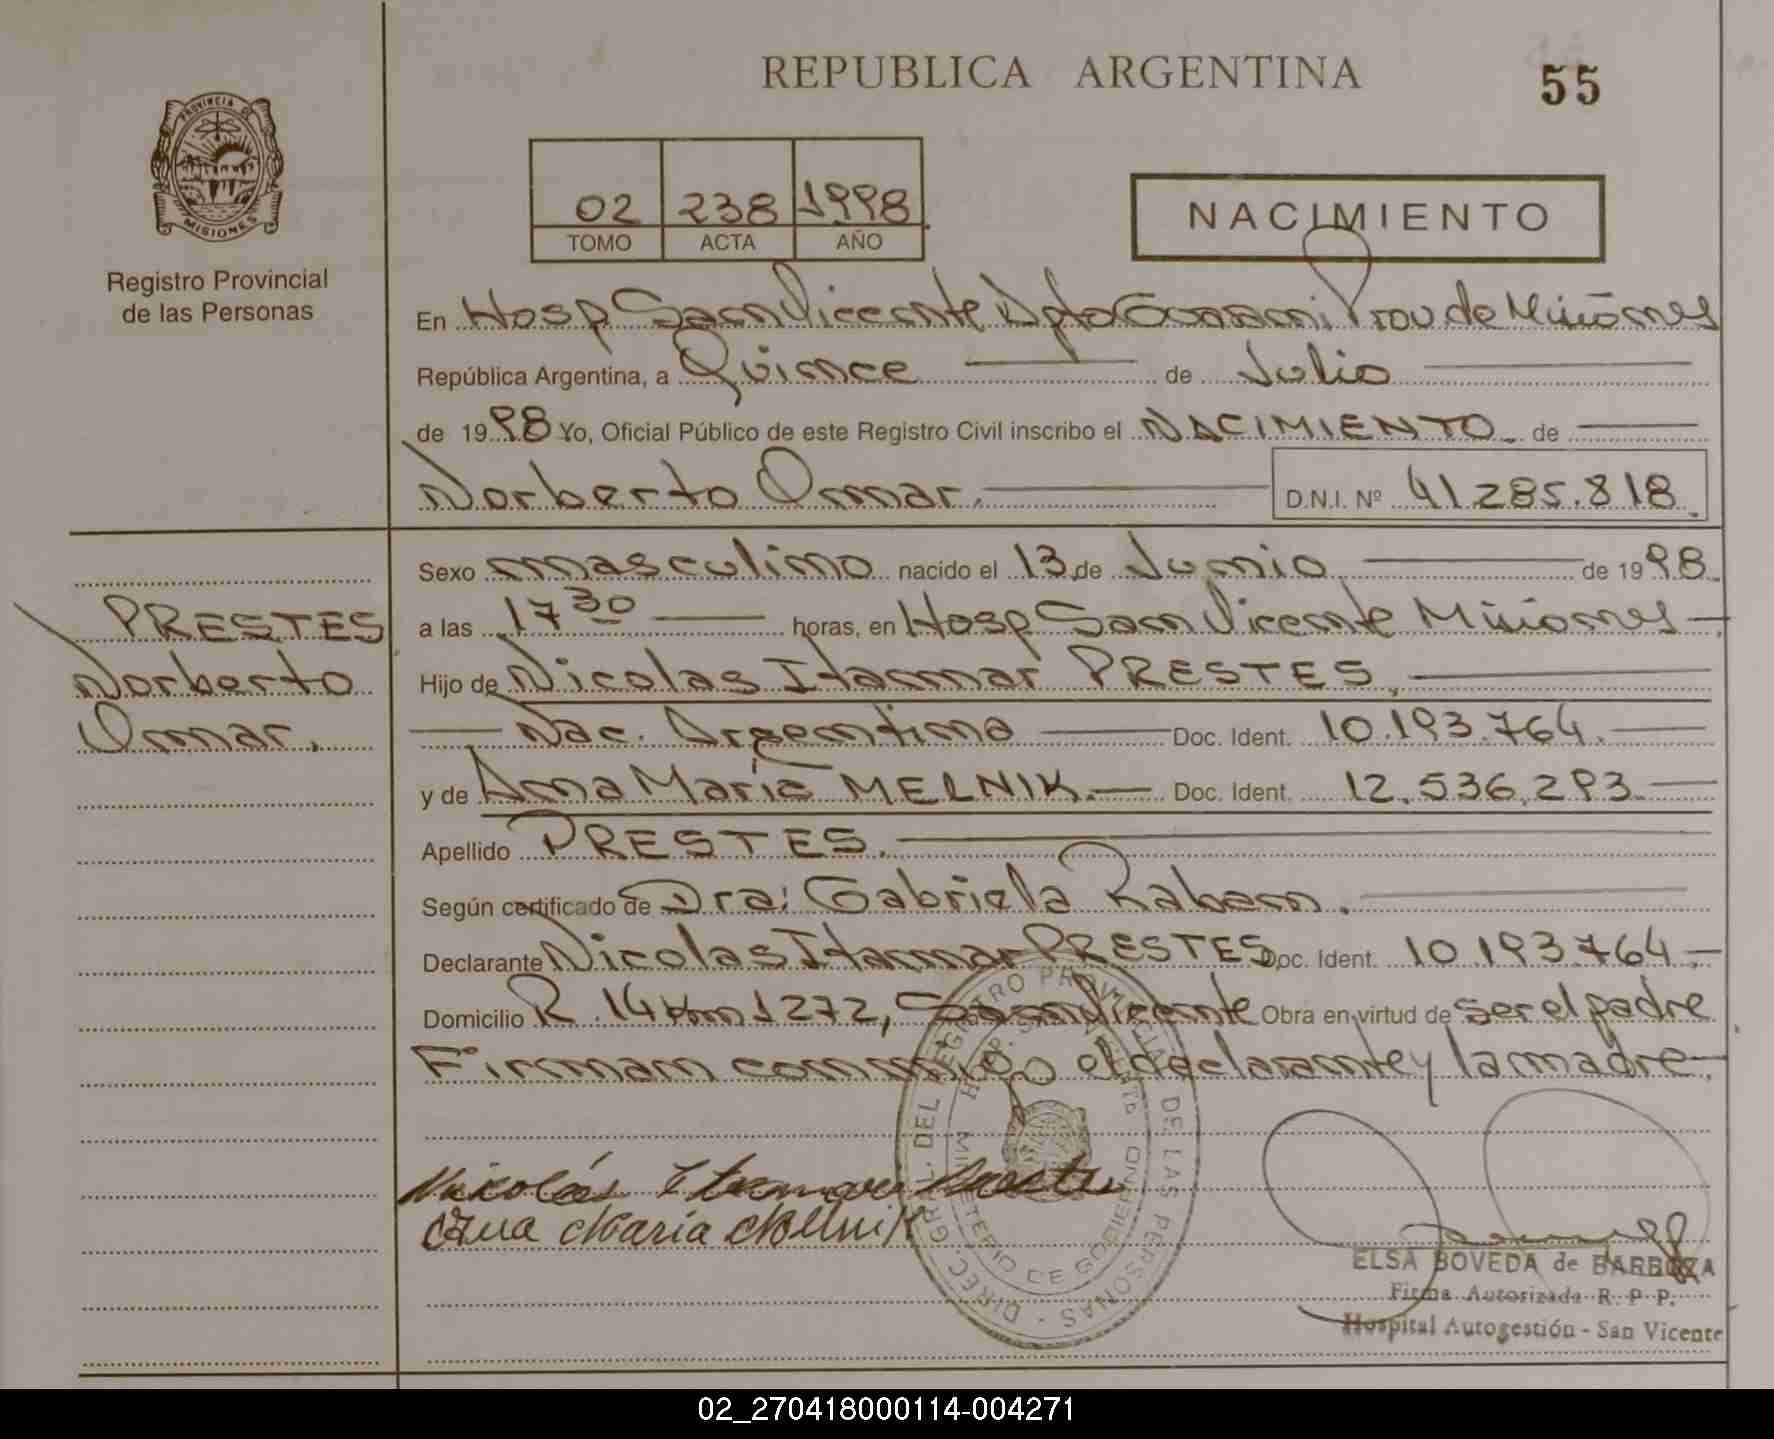 REPUBLICA ARGENTINA
55
PROVINCIA DE
MISIONES
Registro Provincial
de las Personas
02 238 1998
TOMO ACTA AÑO
NACIMIENTO
En Hosp San Vicente Dpto Guarani Prov de Misiones
República Argentina, a Quince de Julio
de 1998 Yo, Oficial Público de este Registro Civil inscribo el NACIMIENTO de
Norberto Omar. D.N.I. Nº 41.285.818
Sexo masculino nacido el 13 de Junio de 1998.
a las 17 30 horas, en Hosp San Vicente Misiones
Hijo de Nicolas Itamar PRESTES,
Nac. Argentina Doc. Ident. 10.193.764.
y de Ana Maria MELNIK. Doc. Ident. 12.536.293.
Apellido PRESTES.
Según certificado de Dra: Gabriela Raban.
Declarante Nicolas Itamar PRESTES Doc. Ident. 10.193.764.
Domicilio R. 14 Km 1272, San Vicente Obra en virtud de ser el padre
Firman conmigo el declarante y la madre.
PRESTES
Norberto
Omar.
Nicolás Itamar Prestes
Ana Maria Melnik
DIREC. GRAL. DEL REGISTRO PROVINCIAL DE LAS PERSONAS
MINISTERIO DE GOBIERNO
ELSA BOVEDA de BARBOZA
Firma Autorizada R. P. P.
Hospital Autogestión - San Vicente
02_270418000114-004271